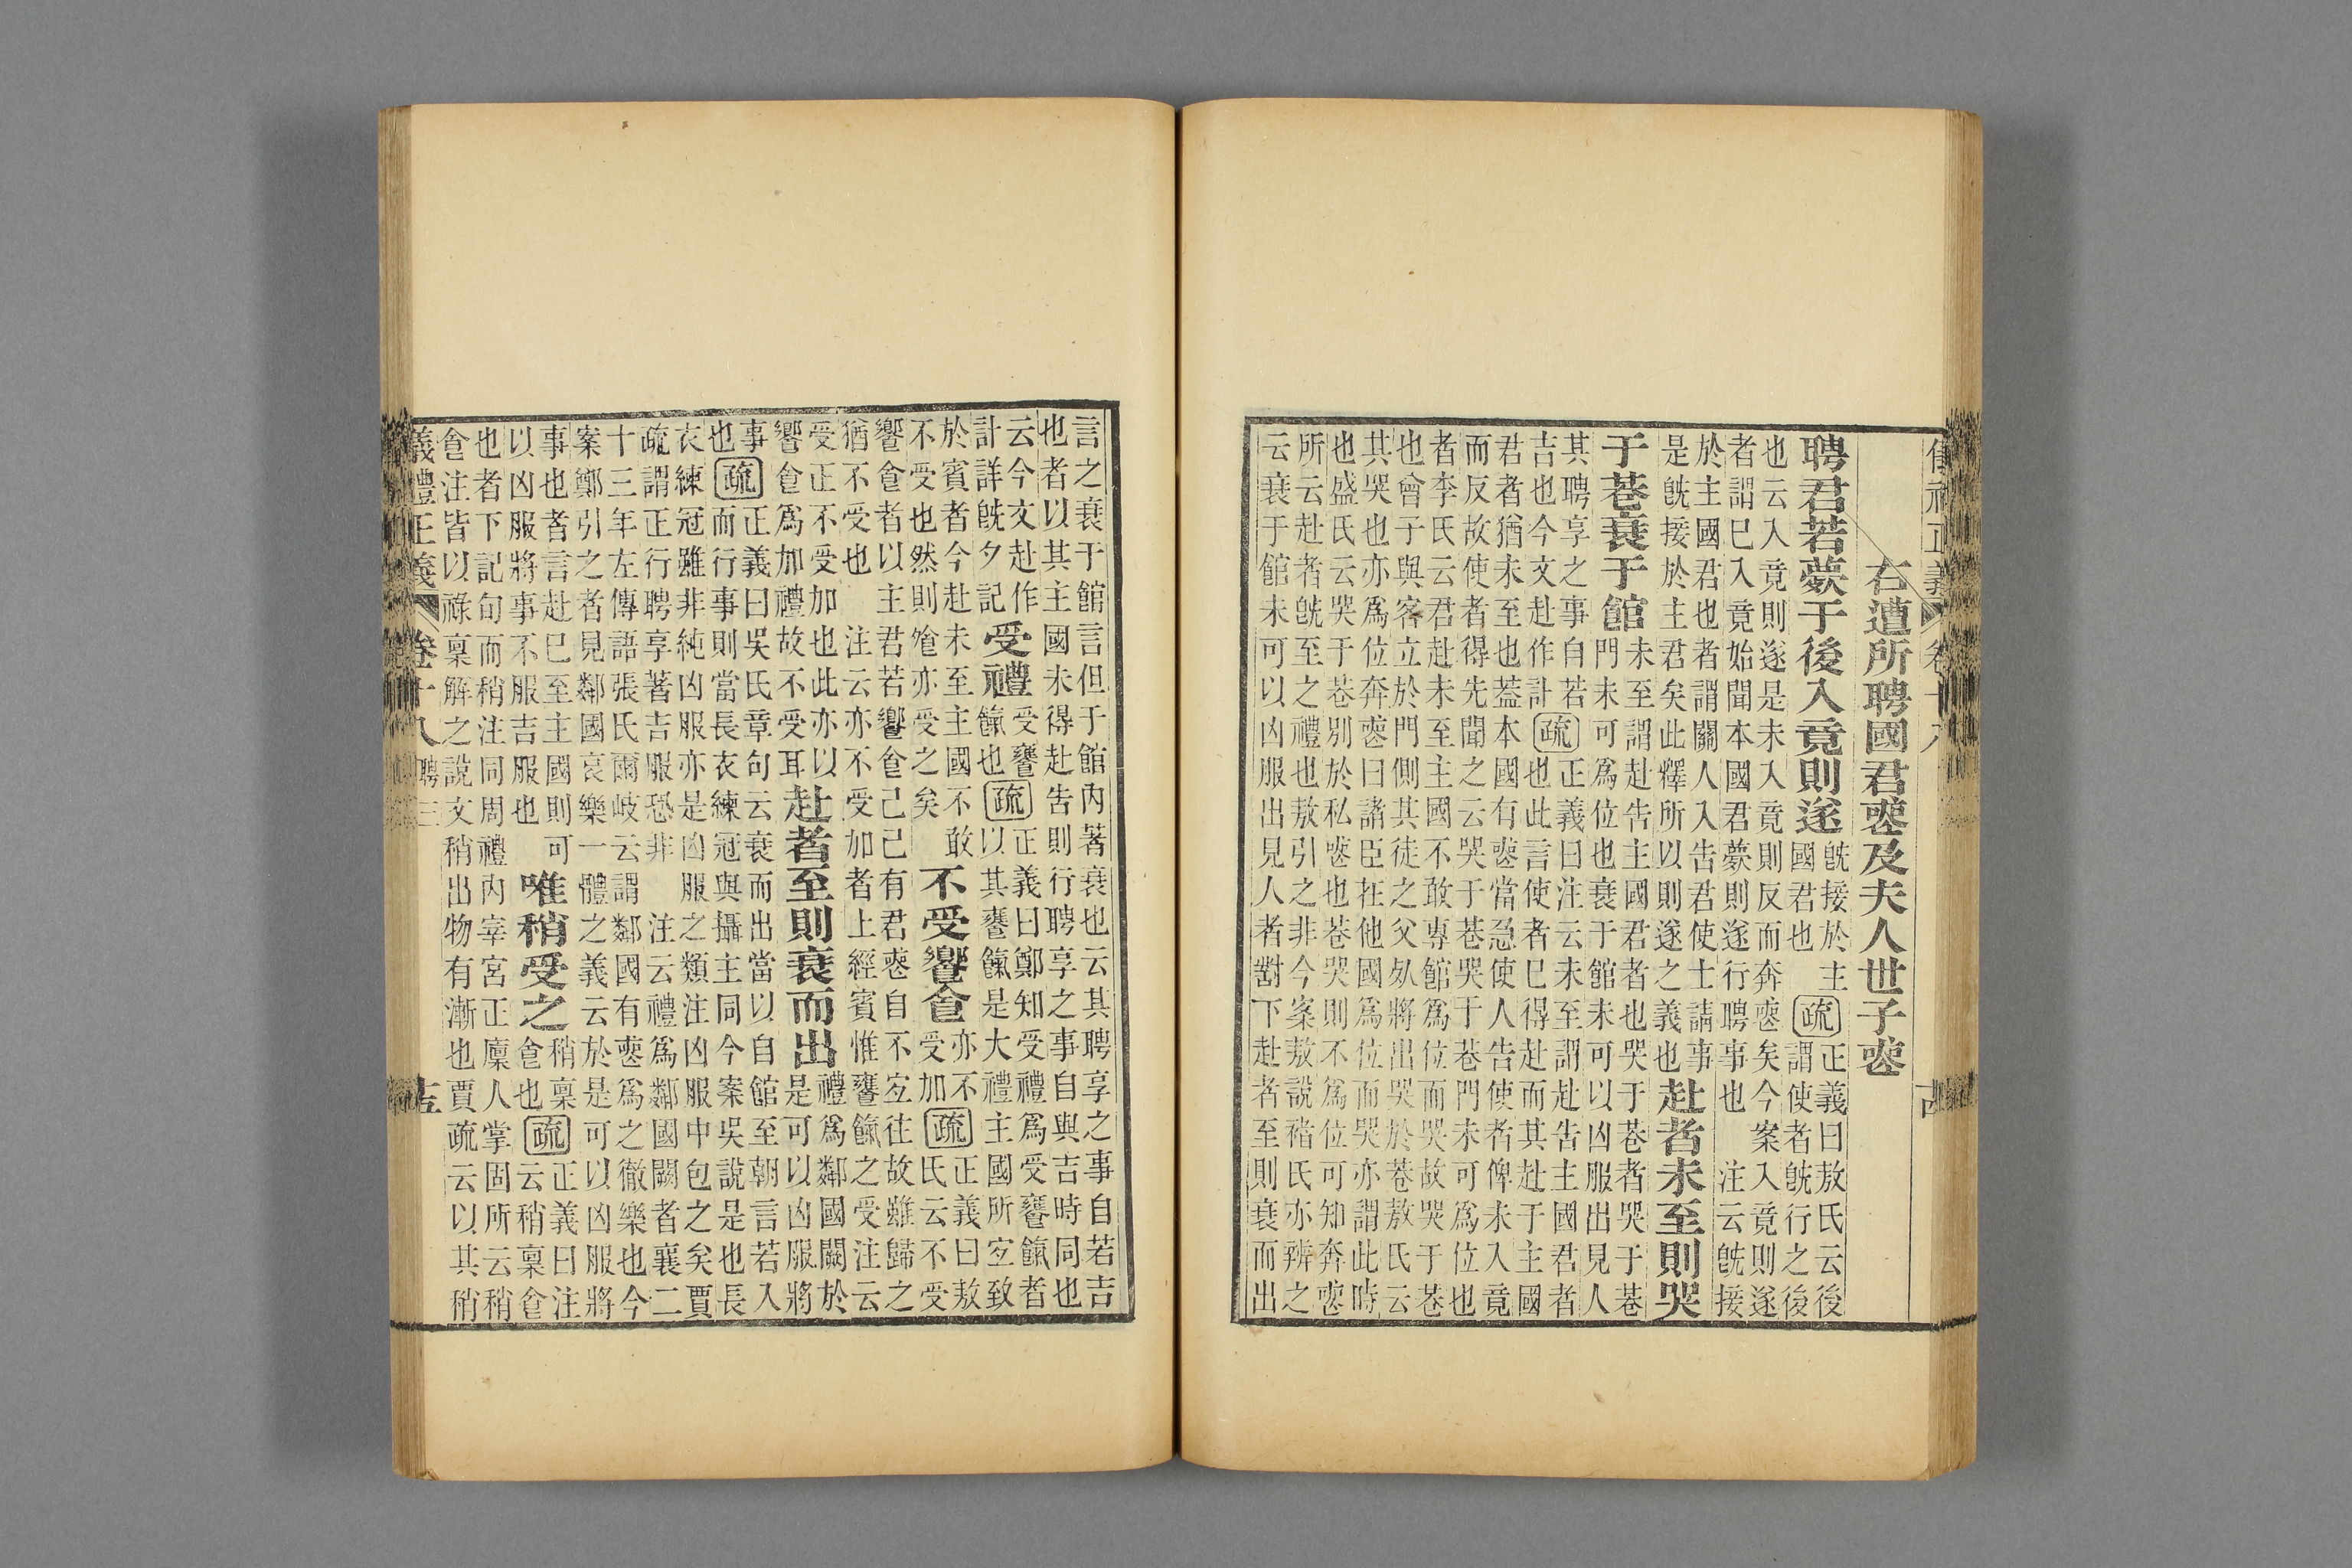 右遭所聘國君喪及夫人世子喪
聘君若薨于後入竟則遂旣接於主
國君也疏正義曰敖氏云後
謂使者旣行之後
也云入竟則遂是未入竟則反而奔喪矣今案入竟則遂
者謂已入竟始聞本國君薨則遂行聘事也 注云旣接
於主國君也者謂關人入告君使士請事
是旣接於主君矣此釋所以則遂之義也赴者未至則哭
于巷衰于館未至謂赴告主國君者也哭于巷者哭于巷
門未可爲位也衰于館未可以凶服出見人
其聘享之事自若
吉也今文赴作訃疏正義曰注云未至謂赴告主國君者
也此言使者已得赴而其赴于主國
君者猶未至也蓋本國有喪當急使人告使者俾未入竟
而反故使者得先聞之云哭于巷哭于巷門未可爲位也
者李氏云君赴未至主國不敢專館爲位而哭故哭于巷
也曾子與客立於門側其徒之父死將出哭於巷敖氏云
其哭也亦爲位奔喪曰諸臣在他國爲位而哭亦謂此時
也盛氏云哭于巷別於私喪也巷哭則不爲位可知奔喪
所云赴者旣至之禮也敖引之非今案敖說褚氏亦辨之
云衰于館未可以凶服出見人者對下赴者至則衰而出
言之衰于館言但于館內著衰也云其聘享之事自若吉
也者以其主國未得赴告則行聘享之事自與吉時同也
云今文赴作
訃詳旣夕記受禮受饔
餼也疏正義曰鄭知受禮爲受饔餼者
以其饔餼是大禮主國所宐致
於賓者今赴未至主國不敢
不受也然則飧亦受之矣不受饗食亦不
受加疏正義曰敖
氏云不受
饗食者以主君若饗食己己有君喪自不宐往故雖歸之
猶不受也 注云亦不受加者上經賓惟饔餼之受注云
受正不受加也此亦以
饗食爲加禮故不受耳赴者至則衰而出禮爲鄰國闕於
是可以凶服將
事
也疏正義曰吳氏章句云衰而出當以自館至朝言若入
而行事則當長衣練冠與攝主同今案吳說是也長
衣練冠雖非純凶服亦是凶服之類注凶服中包之矣賈
疏謂正行聘享著吉服恐非 注云禮爲鄰國闕者襄二
十三年左傳語張氏爾岐云謂鄰國有喪爲之徹樂也今
案鄭引之者見鄰國哀樂一體之義云於是可以凶服將
事也者言赴已至主國則可
以凶服將事不服吉服也唯稍受之稍稟
食也疏正義曰注
云稍稟食
也者下記旬而稍注同周禮內宰宮正廩人掌固所云稍
食注皆以祿稟解之說文稍出物有漸也賈疏云以其稍
義禮正義 卷十八 聘三